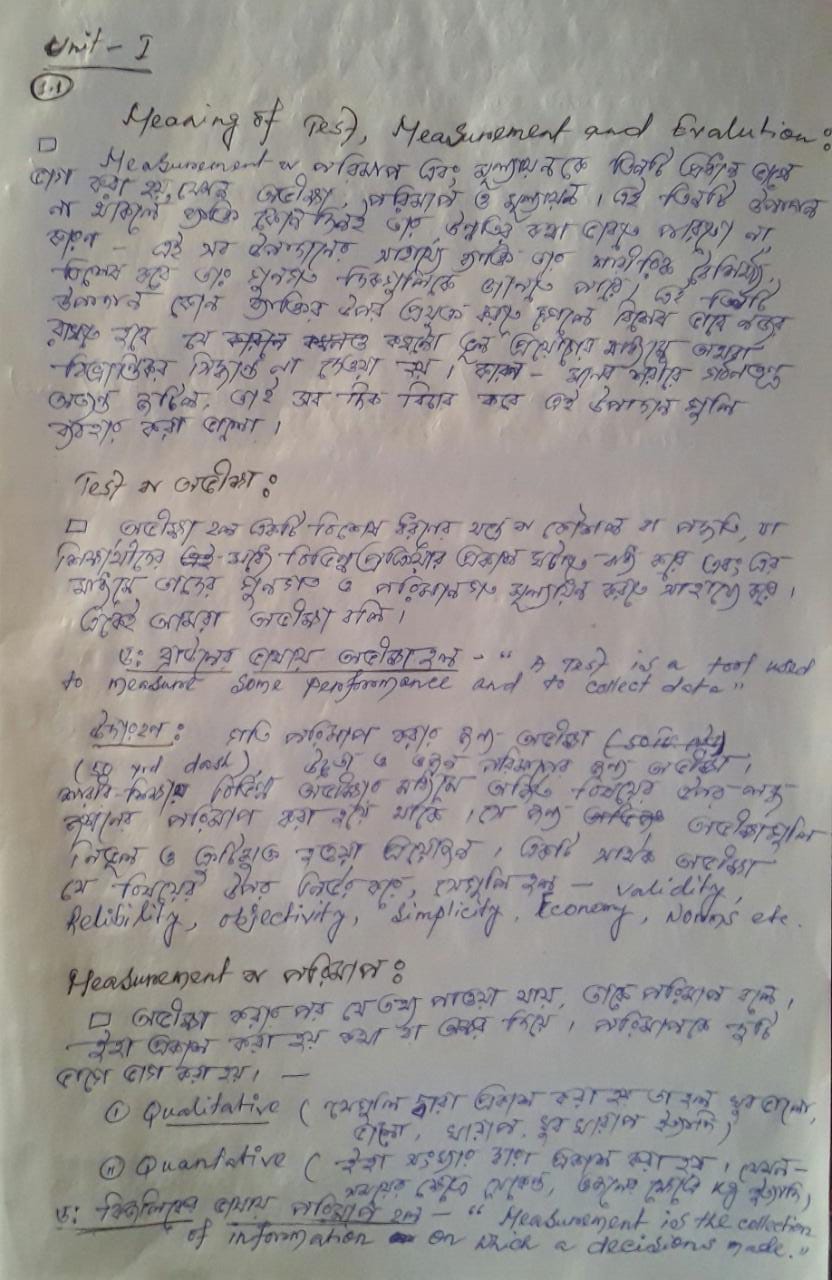 Unit - I
1.1
Meaning of Test, Measurement and Evalution:
□ Measurement বা পরিমাপ এবং মূল্যায়নকে তিনটি প্রধান ভাগে
ভাগ করা হয়, যেমন অভীক্ষা, পরিমাপ ও মূল্যায়ন। এই তিনটি উপাদান
না থাকলে ব্যক্তি কোন দিনই তার উন্নতির কথা ভাবতে পারতো না,
কারণ - এই সব উপাদানের সাহায্যে ব্যক্তি তার শারীরিক বৈশিষ্ট্য,
বিশেষ করে তার গুনগত দিকগুলিকে জানতে পারে। এই তিনটি
উপাদান কোন ব্যক্তির উপর প্রযুক্ত করতে গেলে বিশেষ ভাবে নজর
রাখতে হবে যে কখনো ভুল প্রয়োগের মাধ্যমে অথবা
বিভ্রান্তিকর সিদ্ধান্ত না নেওয়া হয়। কারণ - মানব শরীরে গঠনতন্ত্র
অত্যন্ত জটিল, তাই সব দিক বিচার করে এই উপাদান গুলি
ব্যবহার করা ভালো।
Test বা অভীক্ষা:
□ অভীক্ষা হল একটি বিশেষ ধরনের যন্ত্র বা কৌশল বা পদ্ধতি, যা
শিক্ষার্থীদের মধ্যে বিভিন্ন প্রতিক্রিয়ার প্রকাশ ঘটাতে করে এবং এর
মাধ্যমে তাদের গুনগত ও পরিমানগত মূল্যায়ন করতে সাহায্য করে।
একেই আমরা অভীক্ষা বলি।
ড: ব্যারনের ভাষায় অভীক্ষা হল - "A Test is a tool used
to measure some performance and to collect data"
উদাহরণ: গতি পরিমাপ করার জন্য অভীক্ষা
(50 yrd dash), উচ্চতা ও ওজন পরিমাপের জন্য অভীক্ষা,
শারীর শিক্ষায় বিভিন্ন অভীক্ষার মাধ্যমে অর্জিত বিষয়ের উপর
জ্ঞানের পরিমাপ করা হয়ে থাকে। সে জন্য অভীক্ষাগুলি
নির্ভুল ও ত্রুটিমুক্ত হওয়া প্রয়োজন। একটি সার্থক অভীক্ষা
যে বিষয়ের উপর নির্ভর করে, সেগুলি হল - validity,
Relibility, objectivity, simplicity, Economy, Norms etc.
Measurement বা পরিমাপ:
□ অভীক্ষা করার পর যে তথ্য পাওয়া যায়, তাকে পরিমাপ বলে।
ইহা প্রকাশ করা হয় কথা বা অক্ষর দিয়ে। পরিমাপকে দুটি
ভাগে ভাগ করা হয়। -
(i) Qualitative (যেগুলি দ্বারা প্রকাশ করা হয় তা হল খুব ভালো,
ভালো, খারাপ, খুব খারাপ ইত্যাদি)
(ii) Quantative (ইহা সংখ্যার দ্বারা প্রকাশ করা হয়। যেমন-
সময়ের ক্ষেত্রে সেকেন্ড, ওজনের ক্ষেত্রে kg ইত্যাদি)
ড: ভাষায় পরিমাপ হল - "Measurement is the collection
of information on which a decisions made."